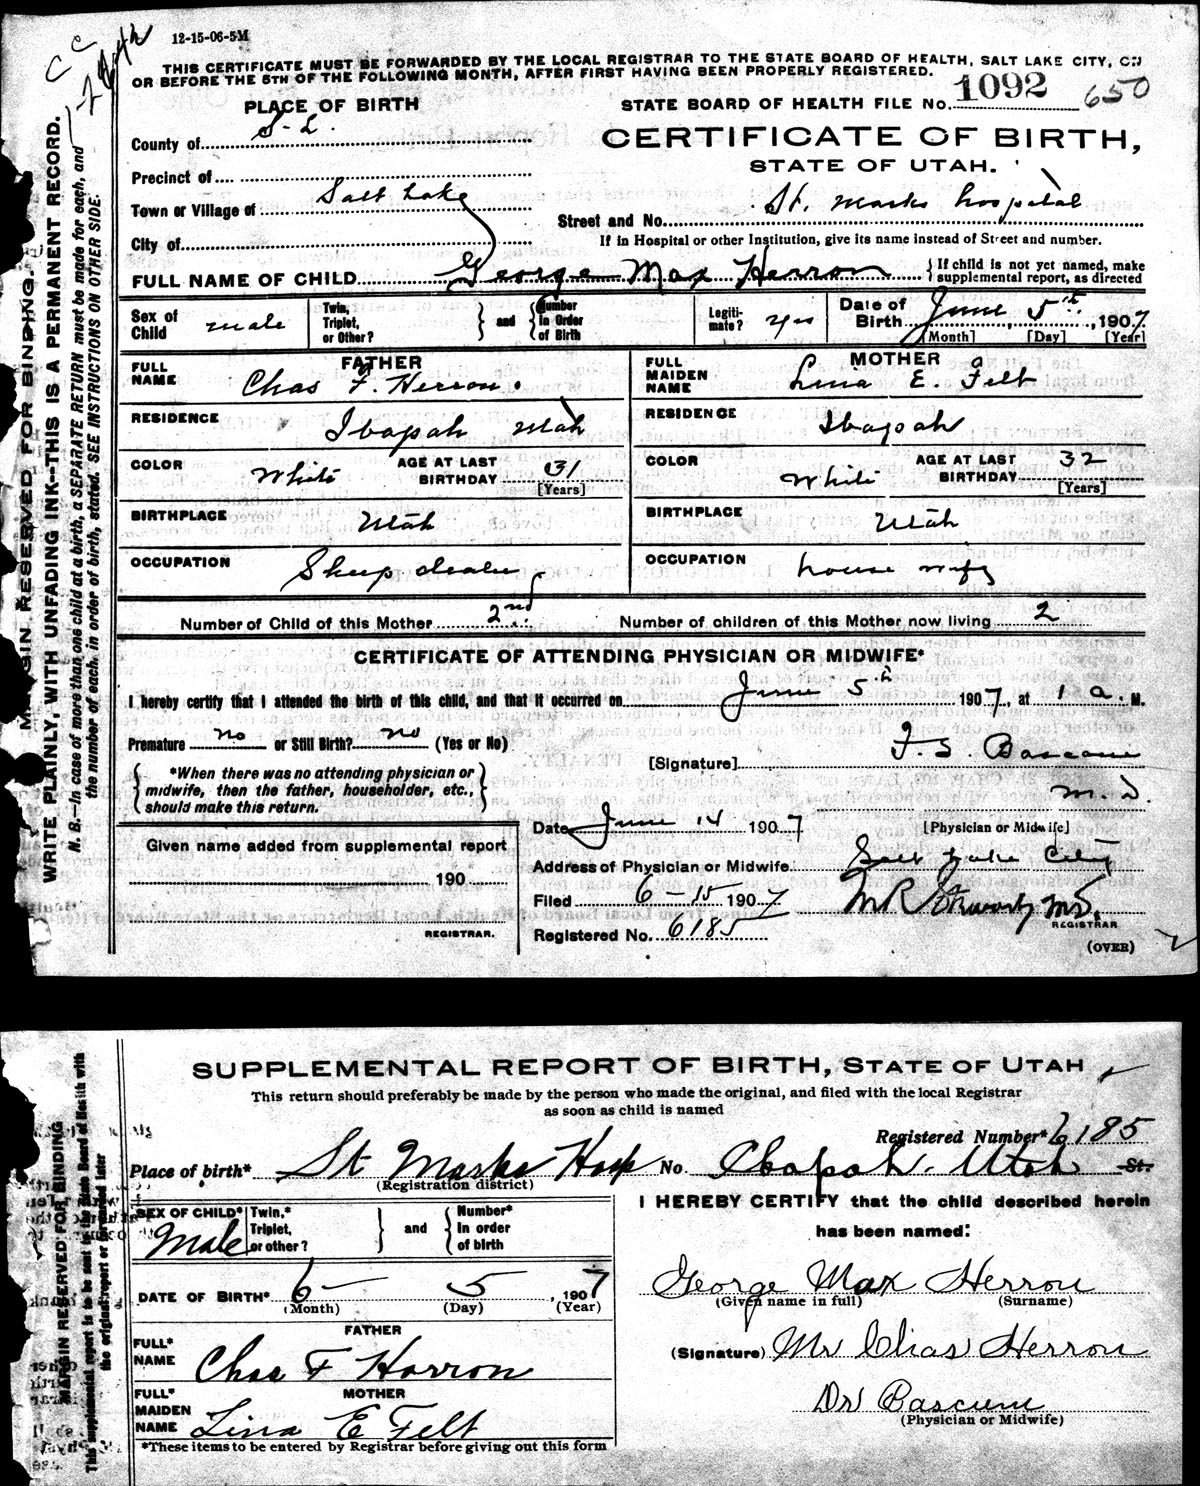 12-15-06-5M
THIS CERTIFICATE MUST BE FORWARDED BY THE LOCAL REGISTRAR TO THE STATE BOARD OF HEALTH, SALT LAKE CITY, ON
OR BEFORE THE 5TH OF THE FOLLOWING MONTH, AFTER FIRST HAVING BEEN PROPERLY REGISTERED.
STATE BOARD OF HEALTH FILE No. 1092 650
PLACE OF BIRTH
County of S. L.
Precinct of
Town or Village of Salt Lake
City of
CERTIFICATE OF BIRTH,
STATE OF UTAH.
Street and No. St. Marks hospital
If in Hospital or other Institution, give its name instead of Street and number.
FULL NAME OF CHILD George Max Herron { If child is not yet named, make supplemental report, as directed
Sex of Child male Twin, Triplet, or Other? } and { Number In Order of Birth Legitimate? yes Date of Birth June 5th, 1907
[Month] [Day] [Year]
FATHER
FULL NAME Chas F. Herron.
RESIDENCE Ibapah Utah
COLOR White AGE AT LAST BIRTHDAY 31 [Years]
BIRTHPLACE Utah
OCCUPATION Sheep dealer
MOTHER
FULL MAIDEN NAME Lina E. Felt
RESIDENCE Ibapah
COLOR White AGE AT LAST BIRTHDAY 32 [Years]
BIRTHPLACE Utah
OCCUPATION house wife
Number of Child of this Mother 2nd Number of children of this Mother now living 2
CERTIFICATE OF ATTENDING PHYSICIAN OR MIDWIFE*
I hereby certify that I attended the birth of this child, and that it occurred on June 5th 1907, at 1 a. M.
Premature no or Still Birth? no (Yes or No)
{ *When there was no attending physician or midwife, then the father, householder, etc., should make this return. }
[Signature] F. S. Bascom
M. D.
Date June 14 1907 [Physician or Midwife]
Address of Physician or Midwife Salt Lake City
Filed 6-15 1907
M.D.
REGISTRAR
Registered No. 6185
(OVER)
Given name added from supplemental report
190
REGISTRAR.
MARGIN RESERVED FOR BINDING
WRITE PLAINLY, WITH UNFADING INK--THIS IS A PERMANENT RECORD.
N. B.—In case of more than one child at a birth, a SEPARATE RETURN must be made for each, and
the number of each, in order of birth, stated. SEE INSTRUCTIONS ON OTHER SIDE.
SUPPLEMENTAL REPORT OF BIRTH, STATE OF UTAH
This return should preferably be made by the person who made the original, and filed with the local Registrar
as soon as child is named
Registered Number* 6185
Place of birth* St Marks Hosp No Ibapah. Utah St.
(Registration district)
SEX OF CHILD* Male Twin,* Triplet, or other? } and { Number* In order of birth
DATE OF BIRTH* 6- 5, 1907
(Month) (Day) (Year)
FATHER
FULL* NAME Chas F Harron
MOTHER
FULL* MAIDEN NAME Lina E Felt
*These items to be entered by Registrar before giving out this form
I HEREBY CERTIFY that the child described herein
has been named:
George Max Herron
(Given name in full) (Surname)
(Signature) Mr Chas Herron
Dr Bascum
(Physician or Midwife)
MARGIN RESERVED FOR BINDING
This supplemental report is to be sent to the State Board of Health with
the original report or forwarded later